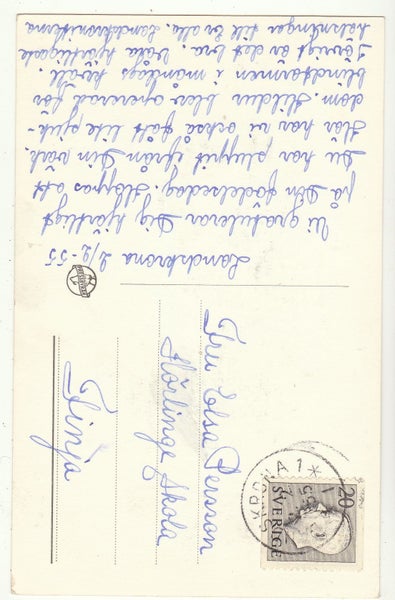 Landskrona 2/2-55
Vi gratulerar Dig hjärtligt
på Din födelsedag. Hoppas att
Du har sluppit ifrån Din värk.
Här har vi också fått lite sjuk-
dom. Hildur blev opererad för
blindtarmen i måndags kväll.
I övrigt är det bra. Våra hjärtligaste
hälsningar till Er alla. Landskroniterna
Fru Elsa Persson
Hörlinge Skola
Finja
20
SVERIGE
KRONA 1